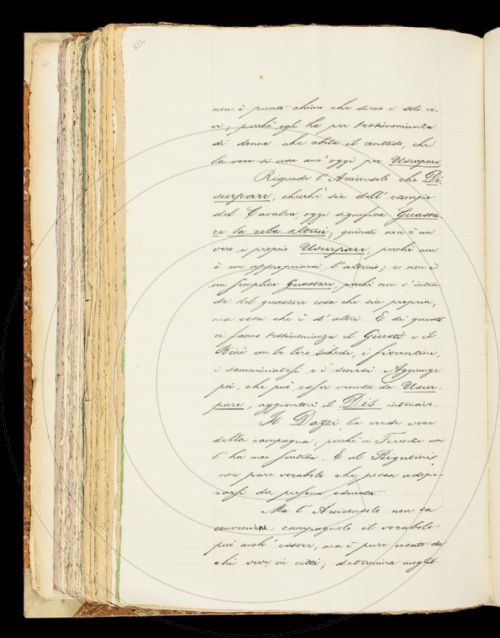 non è punto chiaro che siano i soli vi-
vi; perchè egli ha per testimonianza
di donna che abita il contado, che
la voce si usa anc' oggi per Usurpare
Risponde l' Arciconsolo che Di-
surpare, checchè sia dell' esempio
del Cavalca, oggi significa Guasta-
re la roba altrui; quindi non è un
vero e proprio Usurpare, perchè non
è un appropriarsi l' altrui; e non è
un semplice Guastare, perchè non s' inten-
de del guastare cosa che sia propria,
ma cosa che è d' altri. E di questo
ci fanno testimonianza il Giusti e il
Bini un le loro schede, i fiorentini,
i samminiatesi e i senesi. Aggiunge
poi, che può esser venuta da Usur-
pare, aggiuntovi il Dis intensivo.
Il Dazzi la crede voce
della campagna; perchè in Firenze non
l' ha mai sentita. E al Rigutini
non pare vocabolo che possa adope-
rarsi da persona educata.
Ma l' Arciconsolo non fa
convenire: campagnolo il vocabolo
può anch' essere, ma è pure usato da
chi vive in città; determina meglio